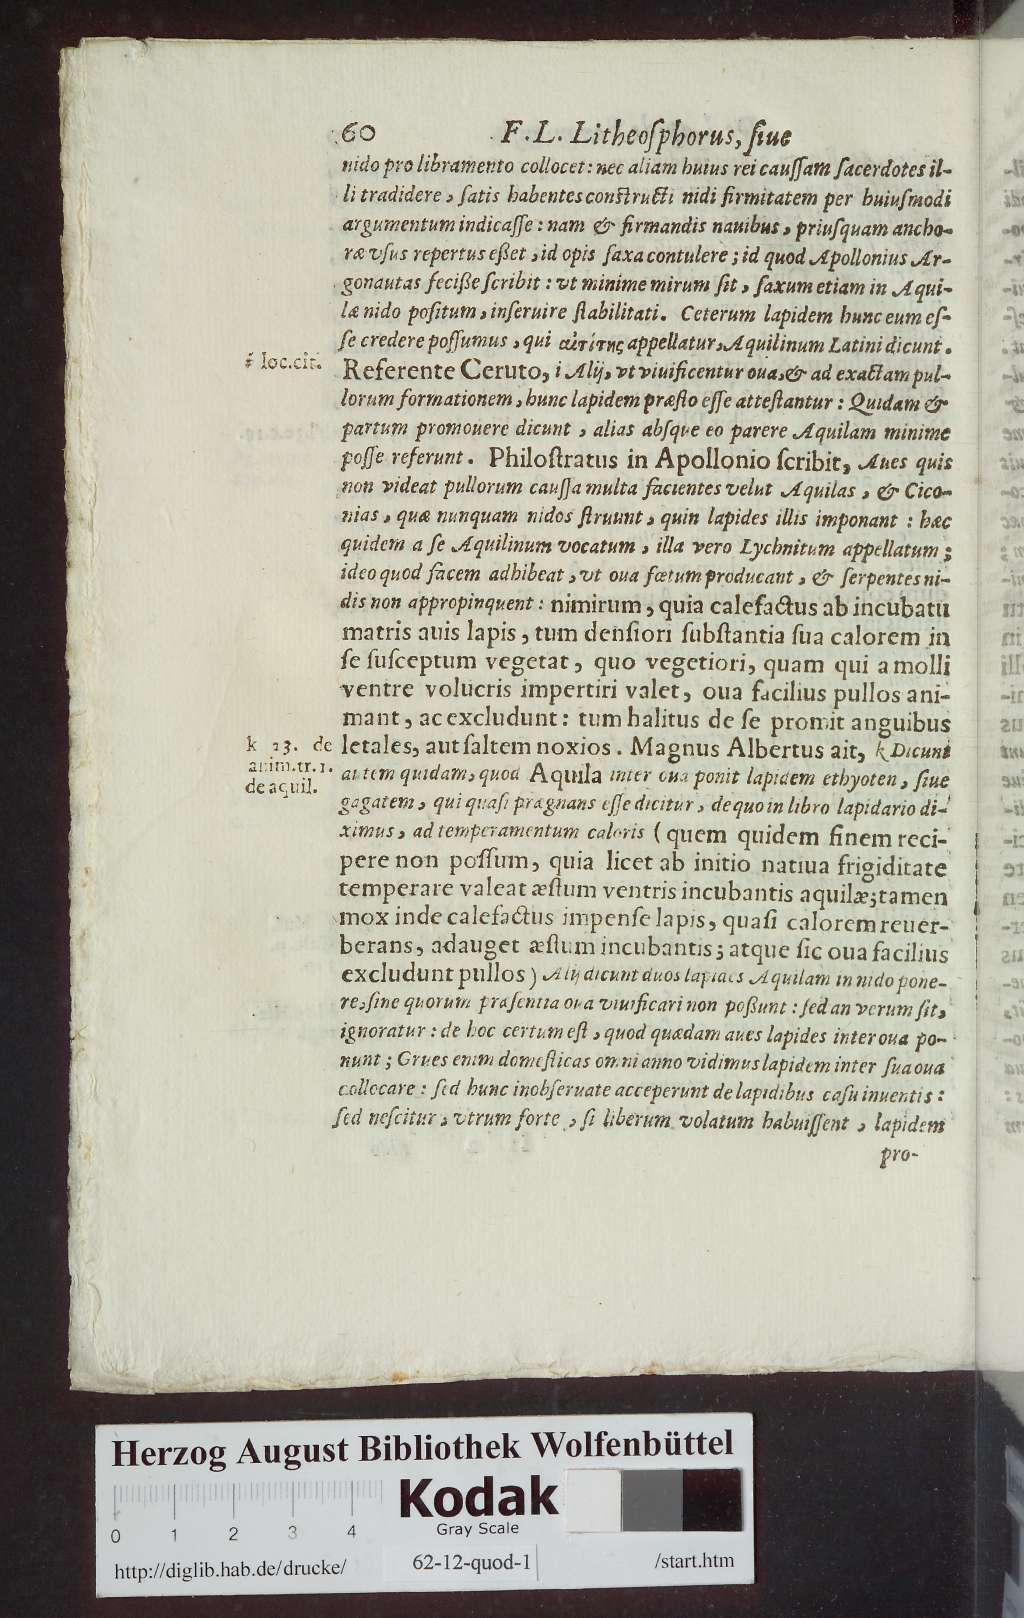 60 F. L. Litheoſphorus, ſiue
nido pro libramento collocet: nec aliam huius rei cauſſam ſacerdotes il-
li tradidere, ſatis habentes conſtructi nidi firmitatem per huiuſmodi
argumentum indicaſſe: nam & firmandis nauibus, priuſquam ancho-
ræ vſus repertus eßet, id opis ſaxa contulere; id quod Apollonius Ar-
gonautas feciße ſcribit: vt minime mirum ſit, ſaxum etiam in Aqui-
læ nido poſitum, inſeruire ſtabilitati. Ceterum lapidem hunc eum eſ-
ſe credere poſſumus, qui αἰτίτης appellatur, Aquilinum Latini dicunt.
i loc.cit.
Referente Ceruto, i Alij, vt viuificentur oua, & ad exactam pul-
lorum formationem, hunc lapidem præſto eſſe atteſtantur: Quidam &
partum promouere dicunt, alias abſque eo parere Aquilam minime
poſſe referunt. Philoſtratus in Apollonio ſcribit, Aues quis
non videat pullorum cauſſa multa facientes velut Aquilas, & Cico-
nias, quæ nunquam nidos ſtruunt, quin lapides illis imponant: hæc
quidem a ſe Aquilinum vocatum, illa vero Lychnitum appellatum;
ideo quod facem adhibeat, vt oua fœtum producant, & ſerpentes ni-
dis non appropinquent: nimirum, quia calefactus ab incubatu
matris auis lapis, tum denſiori ſubſtantia ſua calorem in
ſe ſuſceptum vegetat, quo vegetiori, quam qui a molli
ventre volucris impertiri valet, oua facilius pullos ani-
mant, ac excludunt: tum halitus de ſe promit anguibus
k 23. de
anim.tr.1.
de aquil.
letales, aut ſaltem noxios. Magnus Albertus ait, k Dicunt
autem quidam, quod Aquila inter oua ponit lapidem ethyoten, ſiue
gagatem, qui quaſi prægnans eſſe dicitur, de quo in libro lapidario di-
ximus, ad temperamentum caloris (quem quidem finem reci-
pere non poſſum, quia licet ab initio natiua frigiditate
temperare valeat æſtum ventris incubantis aquilæ; tamen
mox inde calefactus impenſe lapis, quaſi calorem reuer-
berans, adauget æſtum incubantis; atque ſic oua facilius
excludunt pullos) Alij dicunt duos lapides Aquilam in nido pone-
re, ſine quorum præſentia oua viuificari non poßunt: ſed an verum ſit,
ignoratur: de hoc certum eſt, quod quædam aues lapides inter oua po-
nunt; Grues enim domeſticas omni anno vidimus lapidem inter ſua oua
collocare: ſed hunc inobſeruate acceperunt de lapidibus caſu inuentis:
ſed neſcitur, vtrum forte, ſi liberum volatum habuiſſent, lapidem
pro-
Herzog August Bibliothek Wolfenbüttel
Kodak
Gray Scale
0 1 2 3 4
http://diglib.hab.de/drucke/ 62-12-quod-1 /start.htm